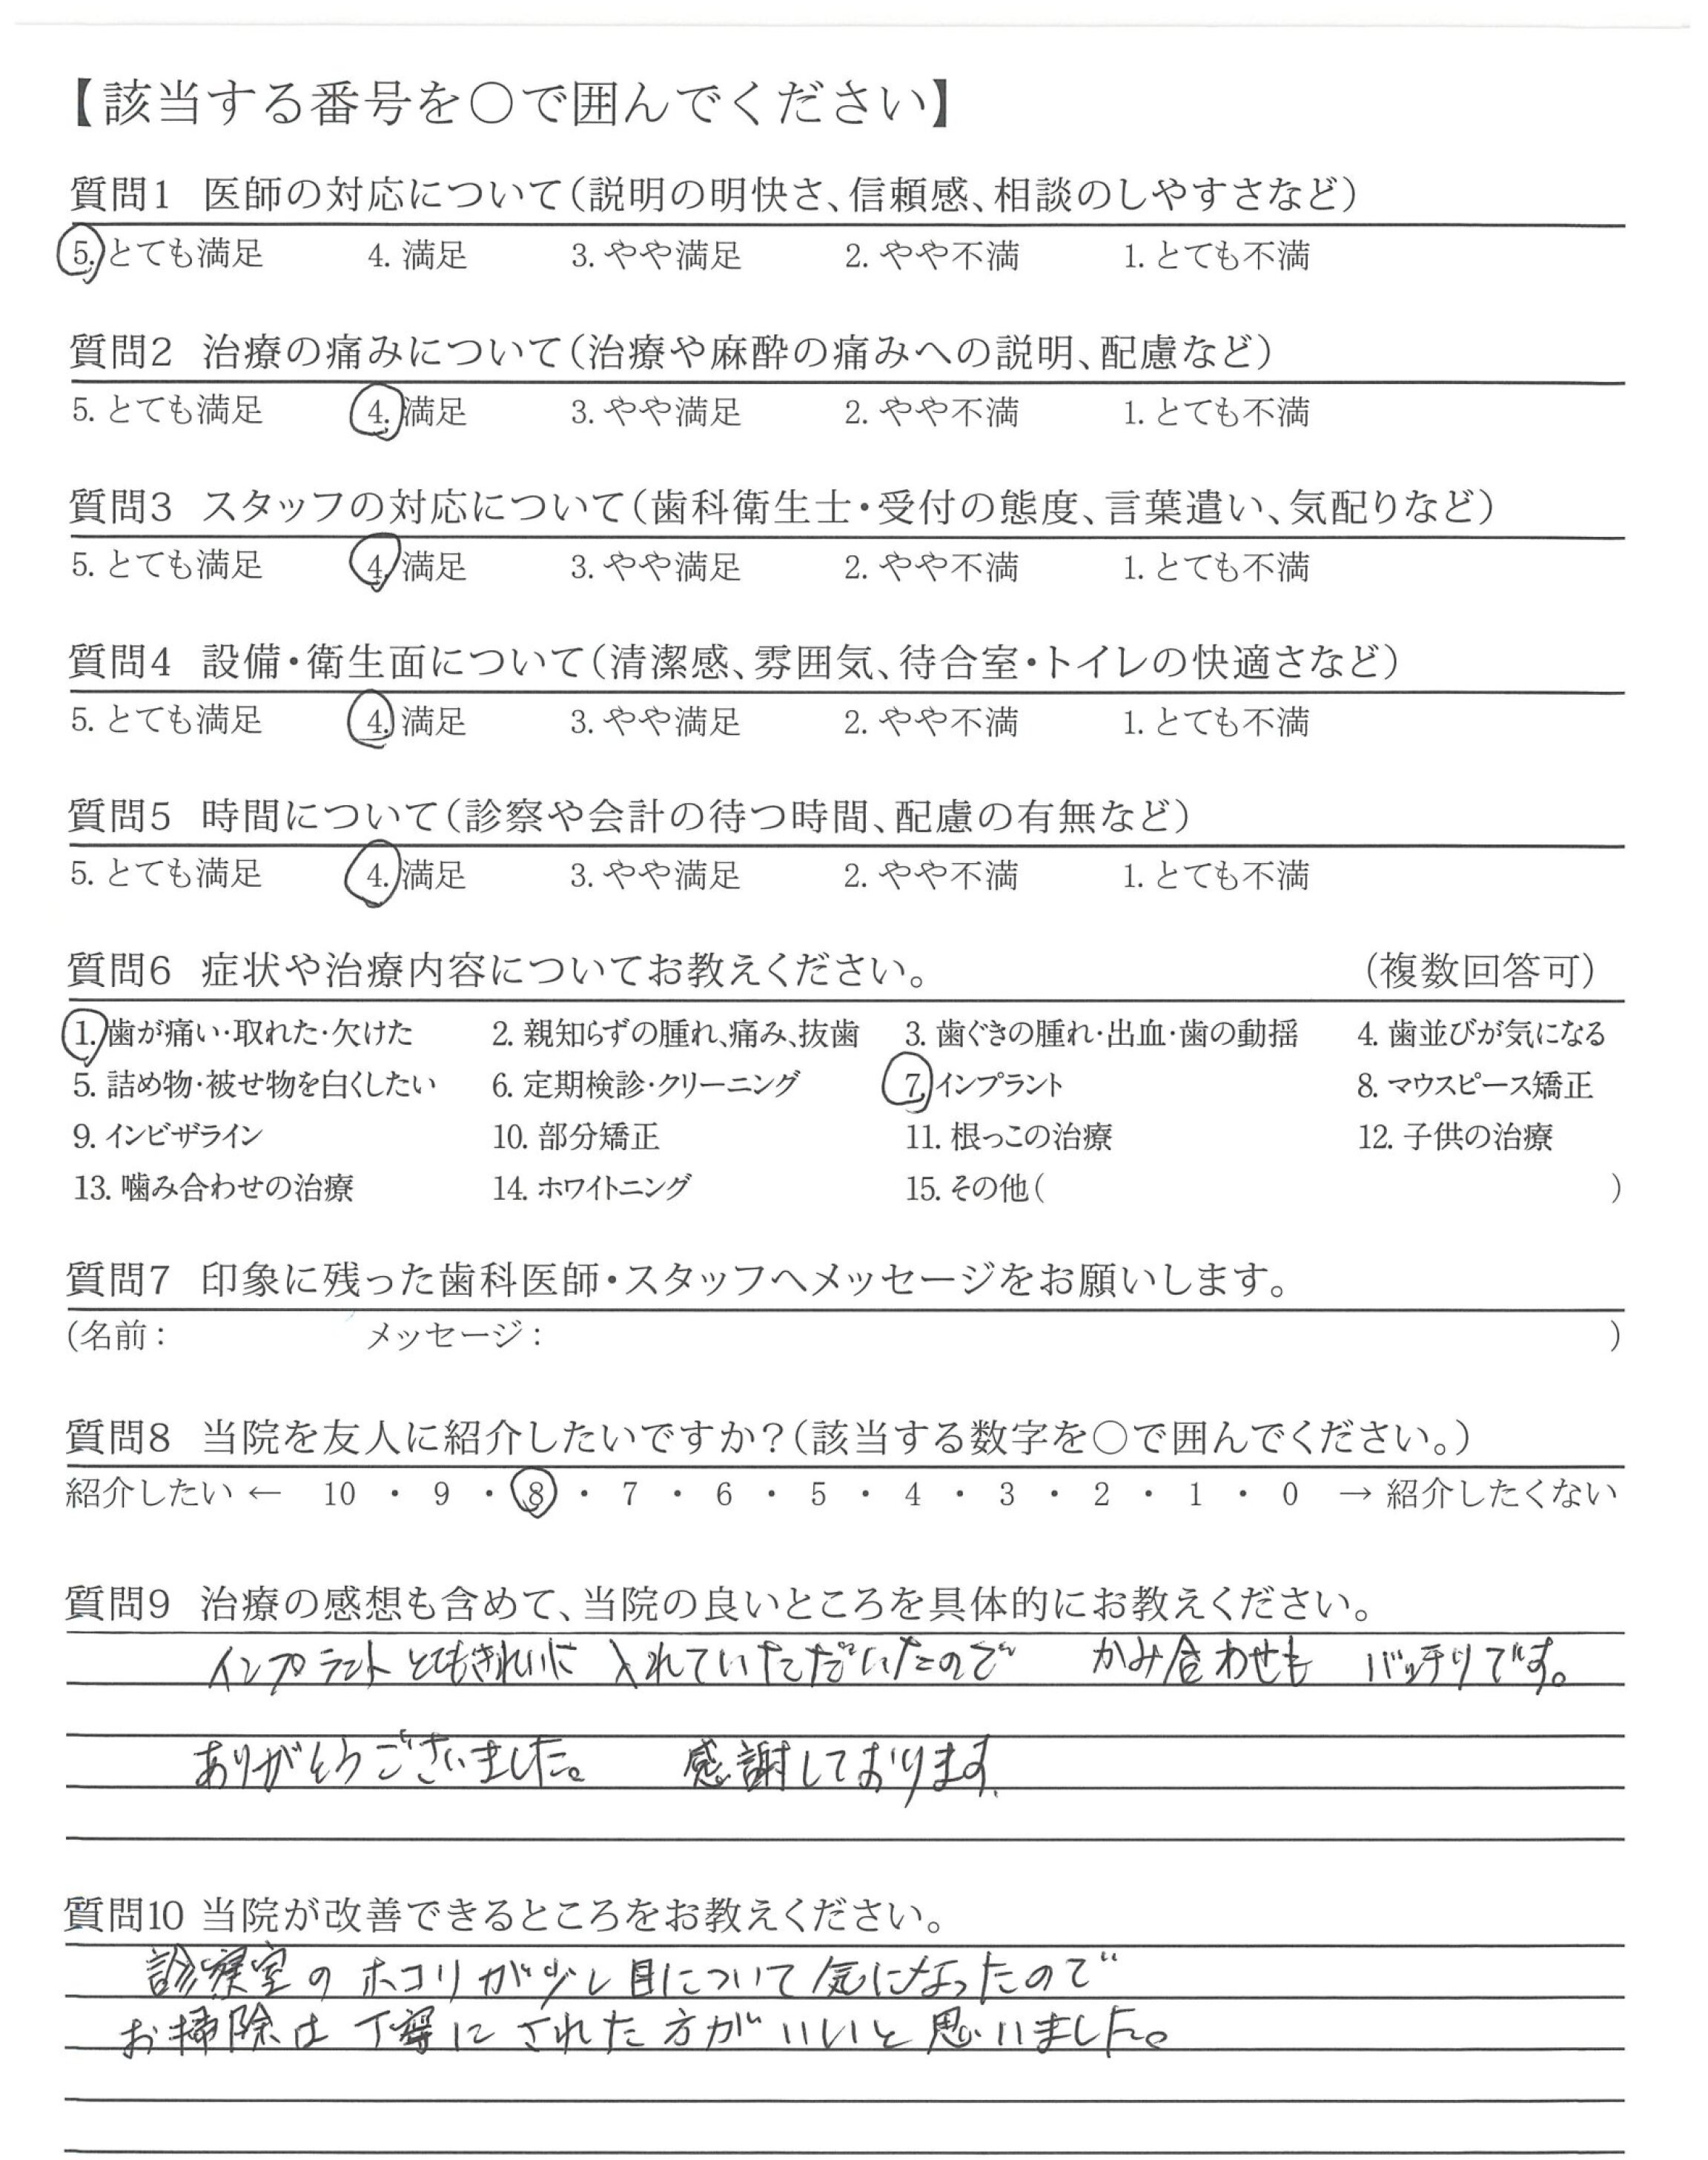 【該当する番号を○で囲んでください】
質問1 医師の対応について（説明の明快さ、信頼感、相談のしやすさなど）
5. とても満足 4. 満足 3. やや満足 2. やや不満 1. とても不満
質問2 治療の痛みについて（治療や麻酔の痛みへの説明、配慮など）
5. とても満足 4. 満足 3. やや満足 2. やや不満 1. とても不満
質問3 スタッフの対応について（歯科衛生士・受付の態度、言葉遣い、気配りなど）
5. とても満足 4. 満足 3. やや満足 2. やや不満 1. とても不満
質問4 設備・衛生面について（清潔感、雰囲気、待合室・トイレの快適さなど）
5. とても満足 4. 満足 3. やや満足 2. やや不満 1. とても不満
質問5 時間について（診察や会計の待つ時間、配慮の有無など）
5. とても満足 4. 満足 3. やや満足 2. やや不満 1. とても不満
質問6 症状や治療内容についてお教えください。 （複数回答可）
1. 歯が痛い・取れた・欠けた 2. 親知らずの腫れ、痛み、抜歯 3. 歯ぐきの腫れ・出血・歯の動揺 4. 歯並びが気になる
5. 詰め物・被せ物を白くしたい 6. 定期検診・クリーニング 7. インプラント 8. マウスピース矯正
9. インビザライン 10. 部分矯正 11. 根っこの治療 12. 子供の治療
13. 噛み合わせの治療 14. ホワイトニング 15. その他（ ）
質問7 印象に残った歯科医師・スタッフへメッセージをお願いします。
（名前： メッセージ： ）
質問8 当院を友人に紹介したいですか？（該当する数字を○で囲んでください。）
紹介したい ← 10 ・ 9 ・ 8 ・ 7 ・ 6 ・ 5 ・ 4 ・ 3 ・ 2 ・ 1 ・ 0 → 紹介したくない
質問9 治療の感想も含めて、当院の良いところを具体的にお教えください。
インプラントとてもきれいに 入れていただいたので かみ合わせも バッチリです。
ありがとうございました。 感謝しております。
質問10 当院が改善できるところをお教えください。
診察室のホコリが少し目について気になったので
お掃除は丁寧にされた方がいいと思いました。